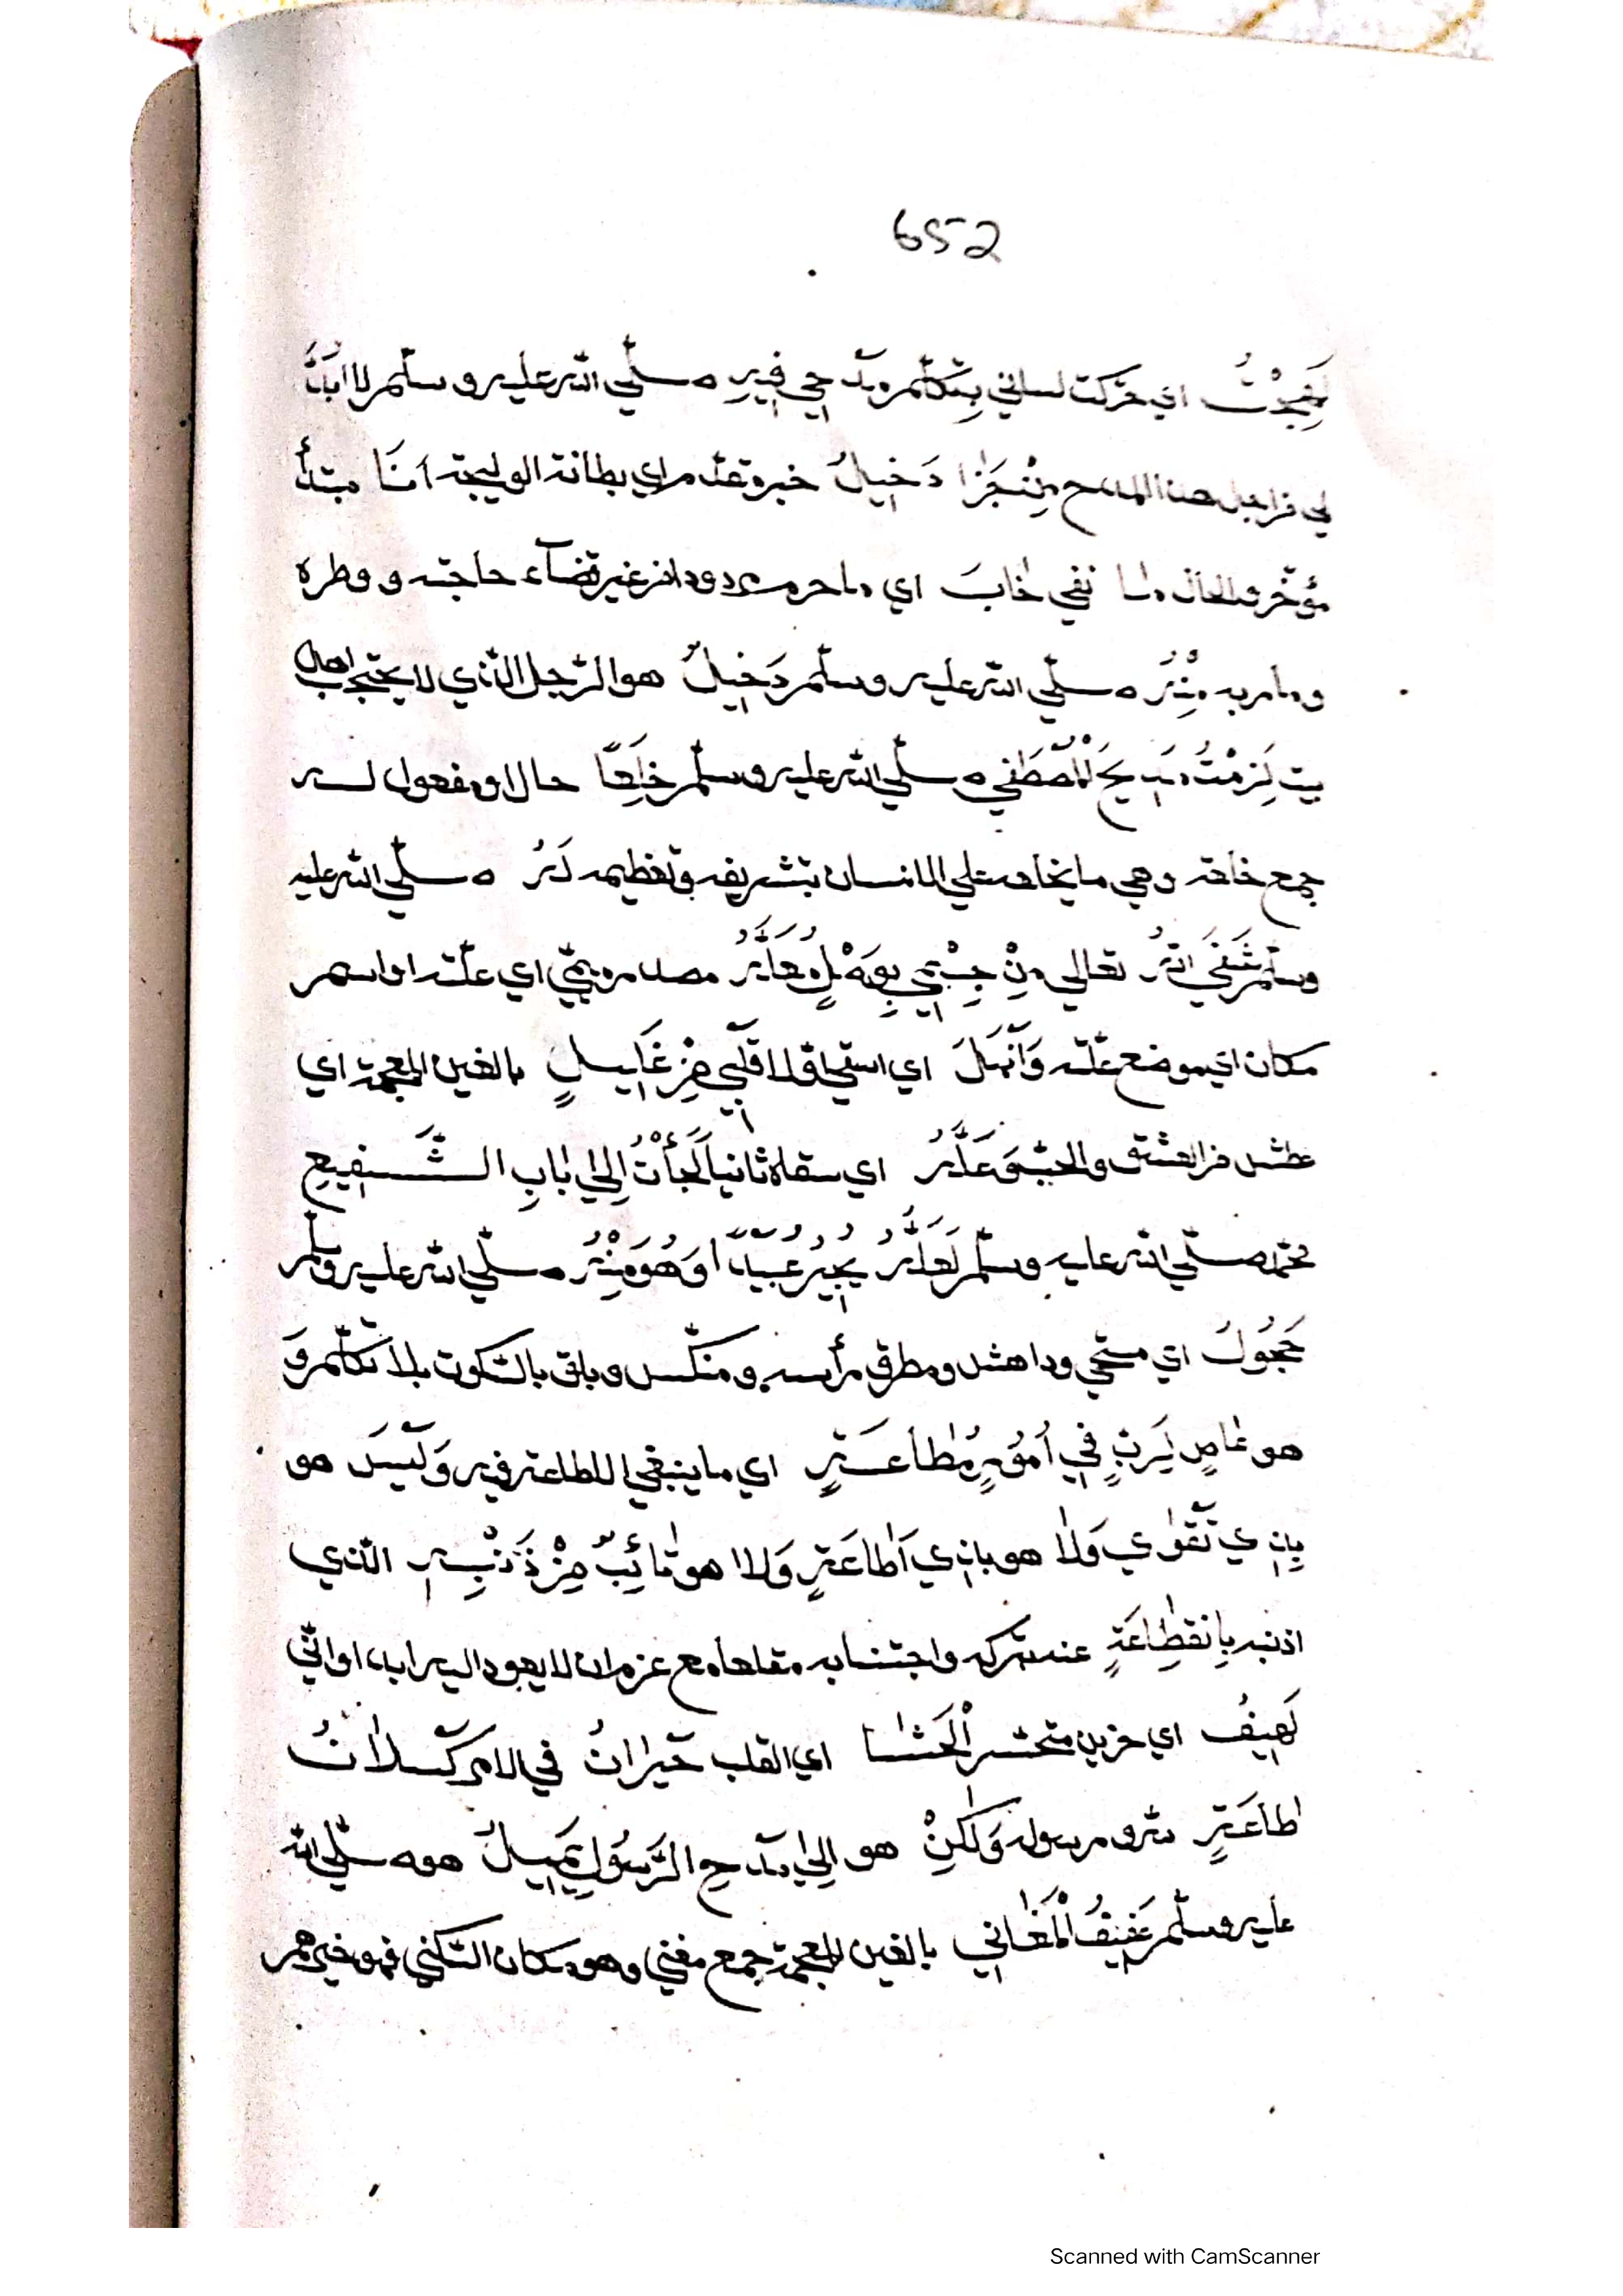 652
لَهِجْتُ اي حركت لساني بتكلم مدحي فيه صلّي الله عليه وسلّم لا ابدّ
لي من اجل هذا المدح مِنْ جَزَا دَخِيلُ خبر مقدم اي بطانة الوليجة اَنَا مبتدأ
مؤخّر والحال ما نفي خَابَ اي ما حرم مردودا من غير قضآء حاجته و وطره
وما مر به مِنْهُ صلّي الله عليه وسلّم دَخِيلُ هو الرّجل الّذي لا يحتجب اهل
بيت لَزِمْتُ مَدِيحَ الْمُصْطَفٰي صلّي الله عليه وسلّم خِلَعًا حال او مفعول له
جمع خلعة وهي ما يخلع علي الانسان بتشريفه وتعظيمه لَهُ صلّي الله عليه
وسلّم شَفَي اللهُ تعالي مِنْ جِسْمِي بِهِ مَعَلَّهُ مصدر ميمّي اي علّته او اسم
مكان اي موضع علّته وَانْهَلَ اي استقي اوّلا قَلْبِي مِنْ غَلِيلٍ بالغين المعجمة اي
عطش من العشق والحبّ وَعَلَّهُ اي سقاه ثانيا لَجَأْتُ اِلٰي بَابِ الشَّفِيعِ
محمّد صلّي الله عليه وسلّم لَعَلَّهُ يُجِيرُ عُبَيْدًا وَهُوَ مِنْهُ صلّي الله عليه وسلّم
خَجُولُ اي مستحي وداهش ومطرق رأسه ومنكّس وباق بالسّكوت بلا تكلّم وَ
هو عَاصٍ لِرَبٍّ فِي اُمُورٍ مُطَاعَةٍ اي ما ينبغي الطاعة فيه وَلَيْسَ هو
بِذِي تَقْوٰي وَلَا هو بذي اَطَاعَةٍ وَلا هو تَائِبٌ مِنْ ذَنْبِهِ الّذي
اذنبه بِانْقِطَاعَةٍ عند تركه واجتنابه مقلعا مع عزم ان لا يعود اليه ابدا وانّي
لَهِيفُ اي حزين متحسر الْحَشَا اي القلب حَيْرَانُ في الامر كَسْلَانُ
طَاعَةٍ لله ورسوله وَلٰكِنْ هو اِلٰي مَدْحِ الرَّسُولِ يَمِيلُ هو صلّي الله
عليه وسلّم عَفِيفُ الْمَغَانِي بالغين المعجمة جمع مغني وهو مكان السّكني فهو خير هم
Scanned with CamScanner